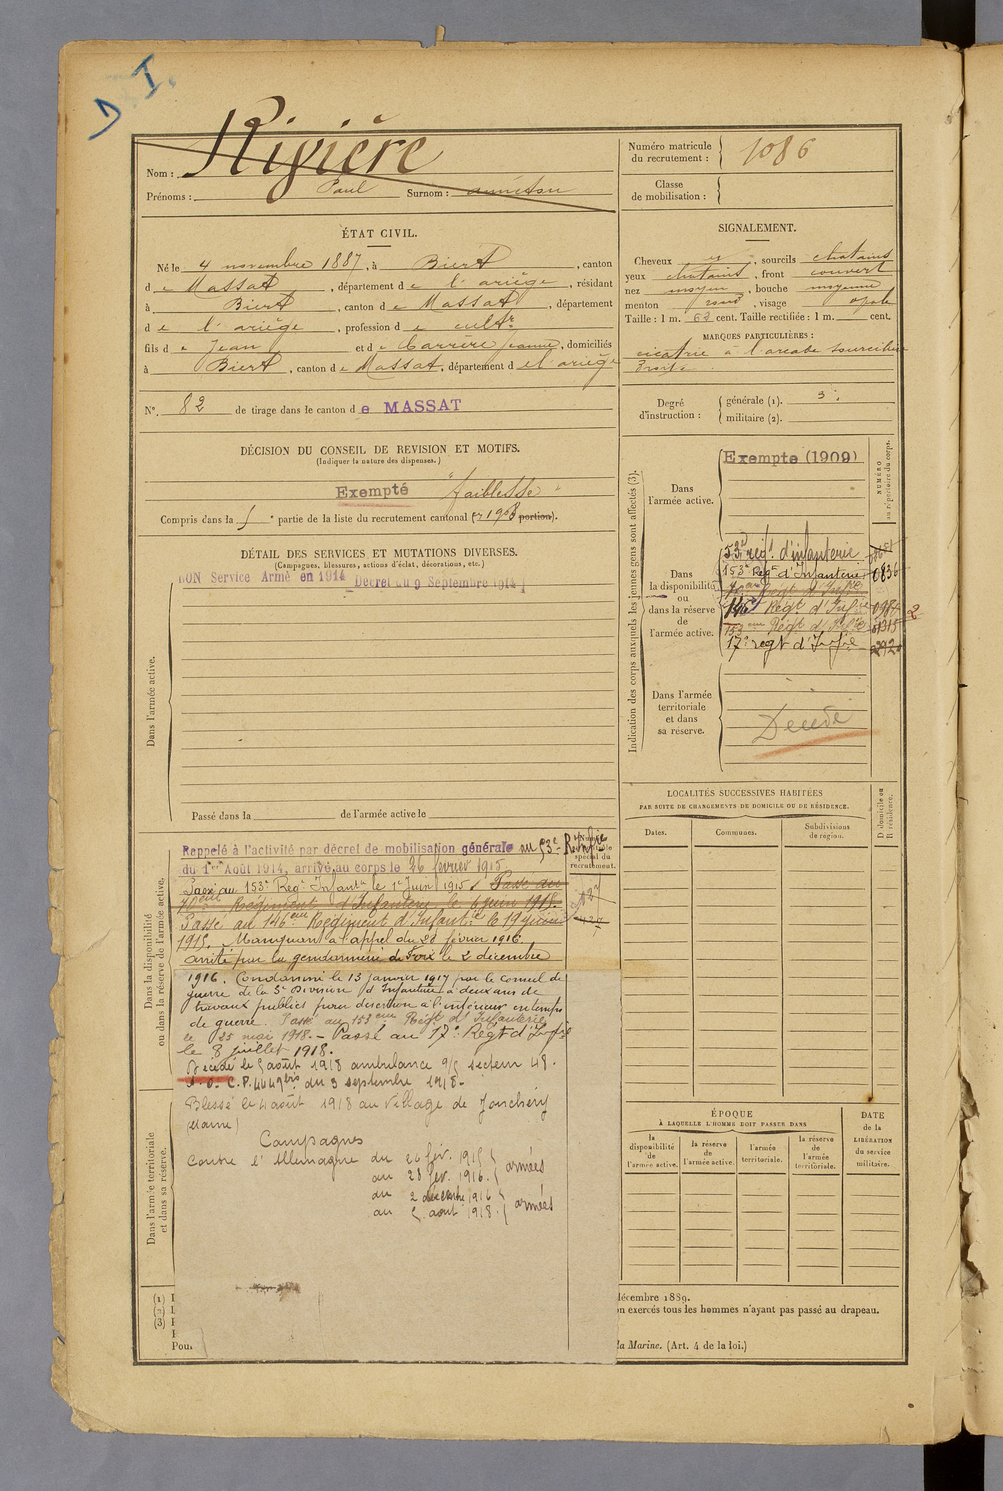 D I.
Rivière
Nom :
Prénoms : Paul Surnom :
Numéro matricule du recrutement : 1086
Classe de mobilisation :
ÉTAT CIVIL.
Né le 4 novembre 1887, à Biert, canton
de Massat, département de l'ariège, résidant
à Biert, canton de Massat, département
de l'ariège, profession de cultr
fils de Jean et de Carrère Jeanne, domiciliés
à Biert, canton de Massat, département de l'ariège
N° 82 de tirage dans le canton de MASSAT
SIGNALEMENT.
Cheveux , sourcils chatains
yeux chatains, front couvert
nez moyen, bouche moyenne
menton rond, visage ovale
Taille : 1 m. 62 cent. Taille rectifiée : 1 m. cent.
MARQUES PARTICULIÈRES :
cicatrie à l'arcade sourcilière
droite
Degré d'instruction : générale (1). 3
militaire (2).
DÉCISION DU CONSEIL DE REVISION ET MOTIFS.
(Indiquer la nature des dispenses.)
Exempté "faiblesse"
Compris dans la 5e partie de la liste du recrutement cantonal ( 1908 portion).
DÉTAIL DES SERVICES ET MUTATIONS DIVERSES.
(Campagnes, blessures, actions d'éclat, décorations, etc.)
BON Service Armé en 1914 Décret du 9 Septembre 1914
Dans l'armée active.
Passé dans la de l'armée active le
Indication des corps auxquels les jeunes gens sont affectés (3).
NUMÉRO au répertoire du corps.
Dans l'armée active.
Exempte (1909)
Dans la disponibilité ou dans la réserve de l'armée active.
53e régt d'infanterie
153e Regt d'Infanterie 0836
146e Régt d'Infrie
153eme Régt d'Infrie
17e regt d'Infie
Dans l'armée territoriale et dans sa réserve.
Décédé
LOCALITÉS SUCCESSIVES HABITÉES
PAR SUITE DE CHANGEMENTS DE DOMICILE OU DE RÉSIDENCE.
Dates.
Communes.
Subdivisions de région.
D domicile ou R résidence.
Dans la disponibilité ou dans la réserve de l'armée active.
Rappelé à l'activité par décret de mobilisation générale au 53e Rt Infie
du 1er Août 1914, arrivé au corps le 26 février 1915
Passé au 153e Regt Infantie le 1er Juin 1915. Passé au
Régiment d'Infanterie le 6 juin 1915.
Passé au 146eme Régiment d'Infantie le 19
1915. Manquant à l'appel du 28 février 1916
arrêté par la gendarmerie de Foix le 2 décembre
1916. Condamné le 13 janvier 1917 par le conseil de
guerre de la 3e Division d'Infanterie à deux ans de
travaux publics pour désertion à l'intérieur en temps
de guerre. Passé au 153eme Régt d'Infanterie
le 25 mai 1918. - Passé au 17e Régt d'Infie
le 8 juillet 1918.
Décédé le 5 août 1918 ambulance 9/5 secteur 48.
C.P. 4649bis du 3 septembre 1918-
Blessé le 4 août 1918 au village de Jonchery
(Marne)
Campagnes
Contre l'Allemagne du 26 fév. 1915
au 28 fev. 1916. armées
du 2 décembre 1916
au 5 août 1918. armées
Dans l'armée territoriale et dans sa réserve.
ÉPOQUE
À LAQUELLE L'HOMME DOIT PASSER DANS
la disponibilité de l'armée active.
la réserve de l'armée active.
l'armée territoriale.
la réserve de l'armée territoriale.
DATE de la LIBÉRATION du service militaire.
(1)
(2)
(3)
décembre 1889.
exercés tous les hommes n'ayant pas passé au drapeau.
Pour
la Marine. (Art. 4 de la loi.)